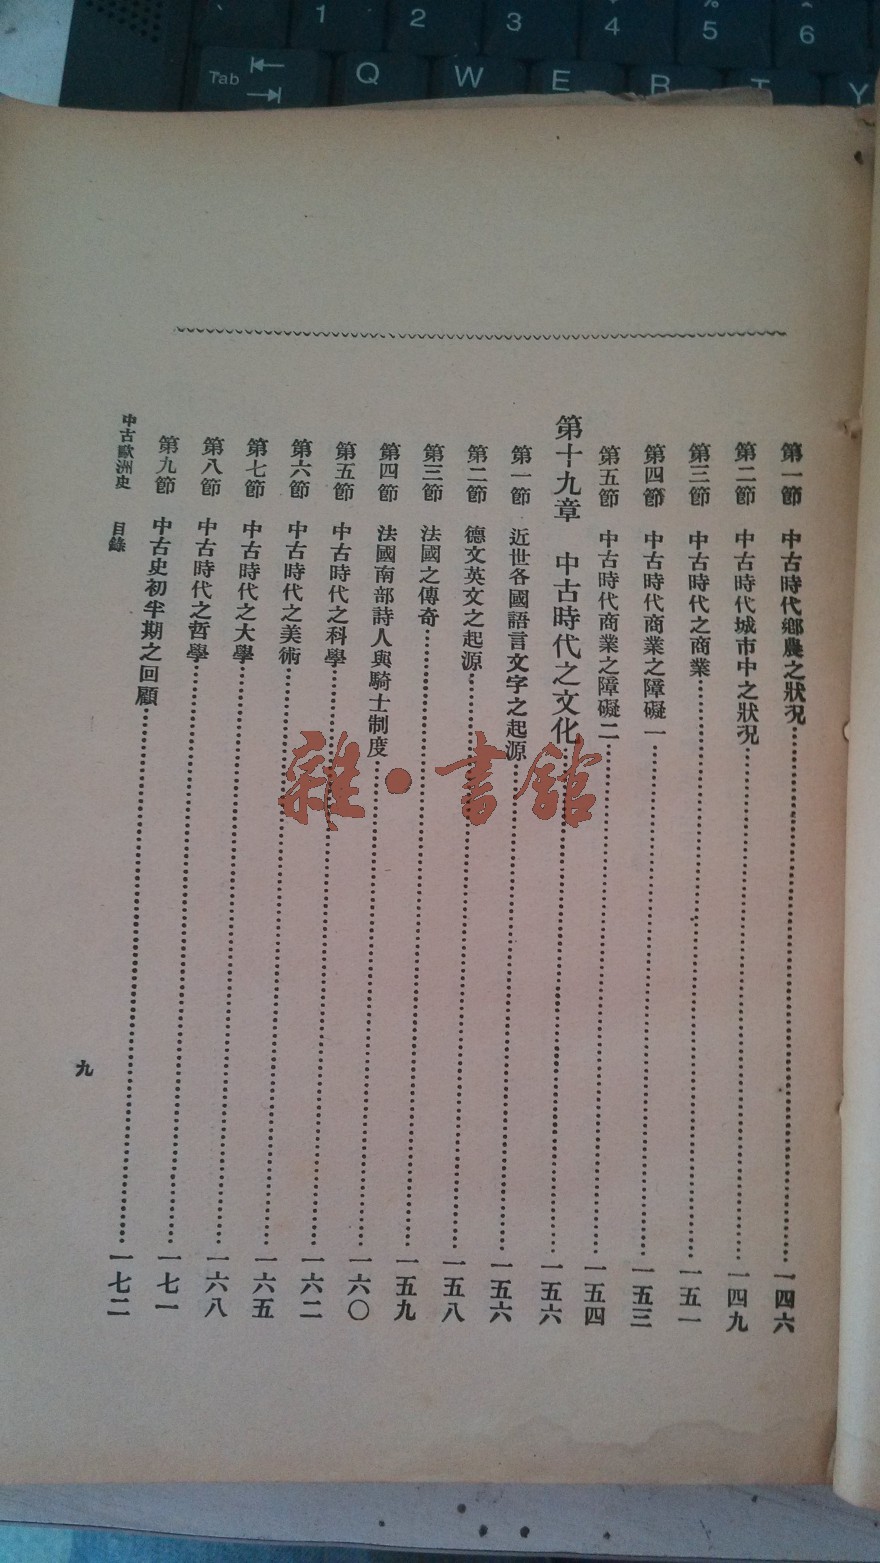 1 2 3 4 5 6
Tab Q W E R T Y
第一節 中古時代鄉農之狀況 一四六
第二節 中古時代城市中之狀況 一四九
第三節 中古時代之商業 一五一
第四節 中古時代商業之障礙一 一五三
第五節 中古時代商業之障礙二 一五四
第十九章 中古時代之文化 一五六
第一節 近世各國語言文字之起源 一五六
第二節 德文英文之起源 一五八
第三節 法國之傳奇 一五九
第四節 法國南部詩人與騎士制度 一六〇
第五節 中古時代之科學 一六二
第六節 中古時代之美術 一六五
第七節 中古時代之大學 一六八
第八節 中古時代之哲學 一七一
第九節 中古史初半期之回顧 一七二
中古歐洲史 目錄
九
雜·書館